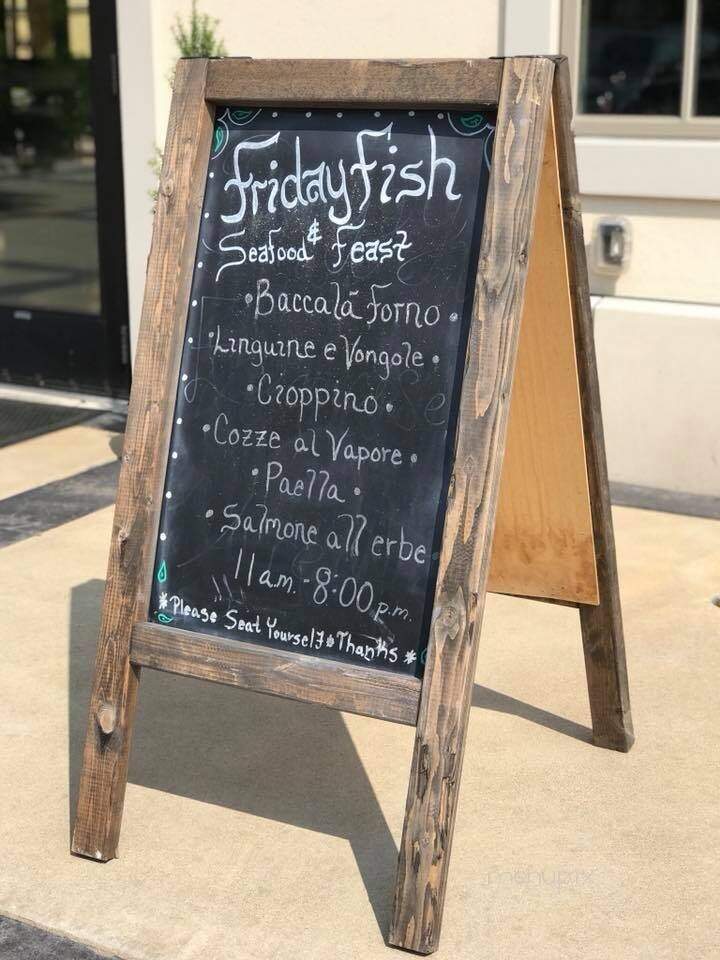 Friday Fish
& 
Seafood Feast
• Baccalá Forno •
• Linguine e Vongole •
• Cioppino •
• Cozze al Vapore •
• Paella •
• Salmone all erbe
11 a.m. - 8:00 p.m.
* Please Seat Yourself * Thanks *